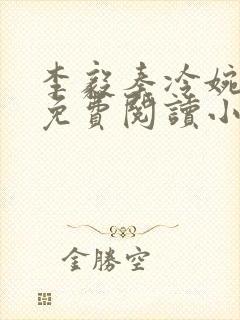 李毅秦冷婉
免費閱讀小
金勝空